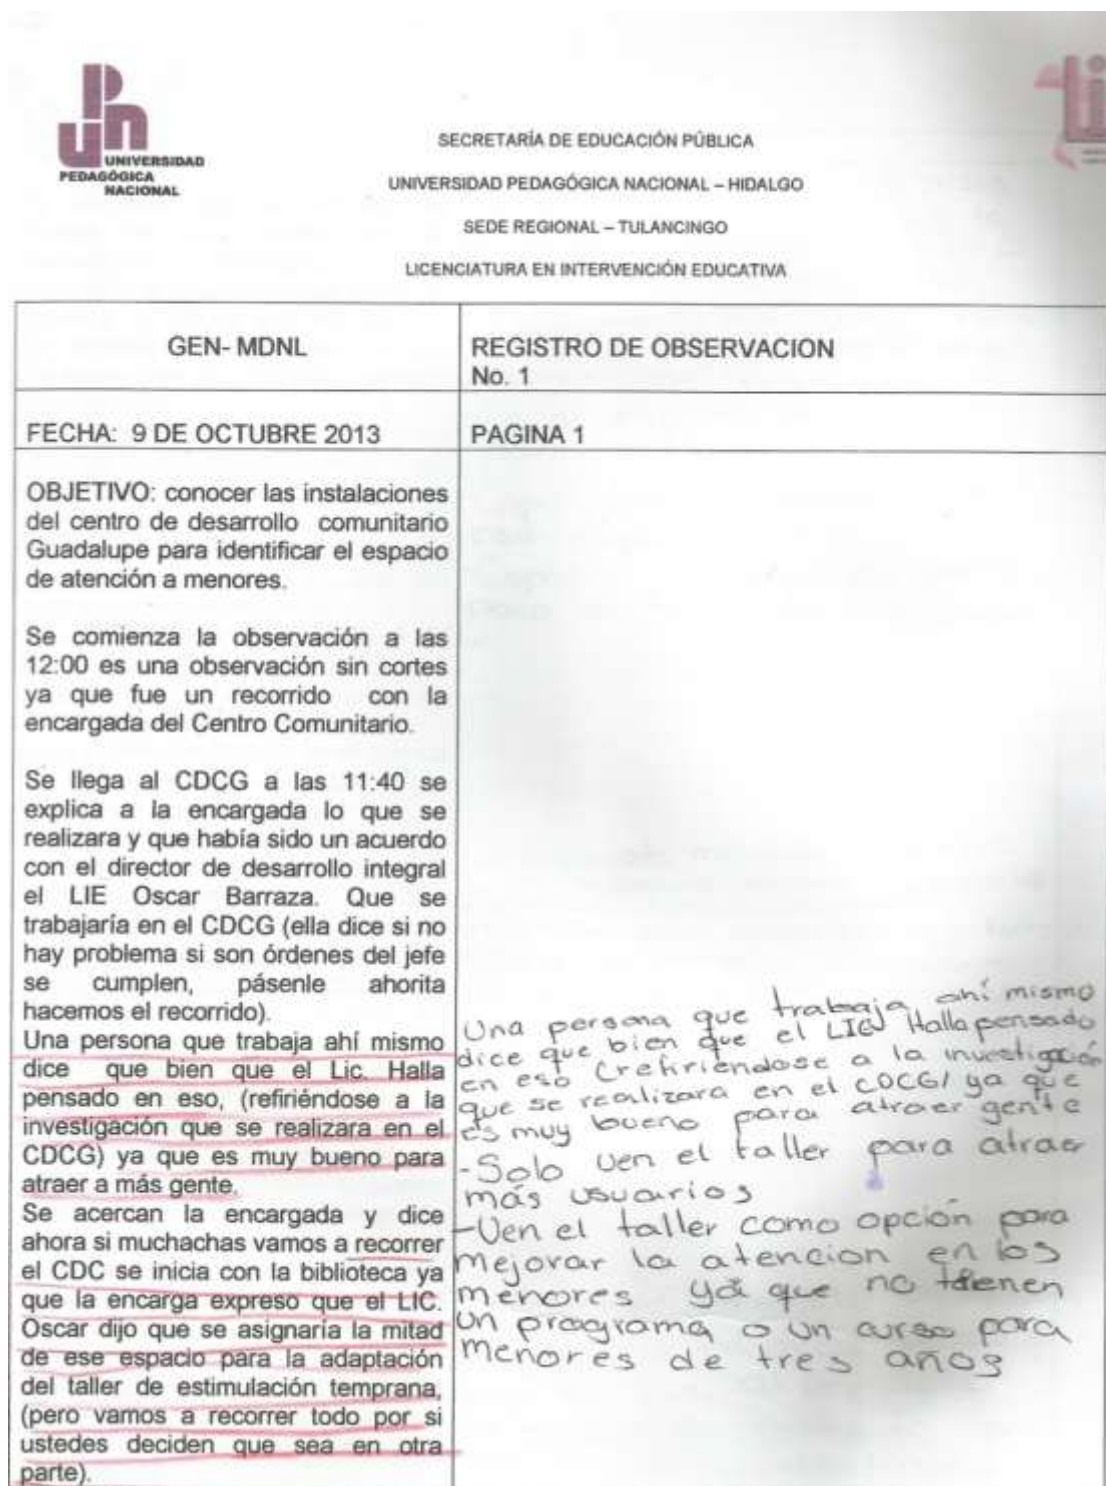 UNIVERSIDAD
PEDAGÓGICA
NACIONAL
SECRETARÍA DE EDUCACIÓN PÚBLICA
UNIVERSIDAD PEDAGÓGICA NACIONAL – HIDALGO
SEDE REGIONAL – TULANCINGO
LICENCIATURA EN INTERVENCIÓN EDUCATIVA
GEN- MDNL
REGISTRO DE OBSERVACION
No. 1
FECHA: 9 DE OCTUBRE 2013
PAGINA 1
OBJETIVO: conocer las instalaciones
del centro de desarrollo comunitario
Guadalupe para identificar el espacio
de atención a menores.
Se comienza la observación a las
12:00 es una observación sin cortes
ya que fue un recorrido con la
encargada del Centro Comunitario.
Se llega al CDCG a las 11:40 se
explica a la encargada lo que se
realizara y que había sido un acuerdo
con el director de desarrollo integral
el LIE Oscar Barraza. Que se
trabajaría en el CDCG (ella dice si no
hay problema si son órdenes del jefe
se cumplen, pásenle ahorita
hacemos el recorrido).
Una persona que trabaja ahí mismo
dice que bien que el Lic. Halla
pensado en eso, (refiriéndose a la
investigación que se realizara en el
CDCG) ya que es muy bueno para
atraer a más gente.
Se acercan la encargada y dice
ahora si muchachas vamos a recorrer
el CDC se inicia con la biblioteca ya
que la encarga expreso que el LIC.
Oscar dijo que se asignaría la mitad
de ese espacio para la adaptación
del taller de estimulación temprana,
(pero vamos a recorrer todo por si
ustedes deciden que sea en otra
parte).
Una persona que trabaja ahí mismo
dice que bien que el LIC Halla pensado
en eso (refiriéndose a la investigación
que se realizara en el CDCG) ya que
es muy bueno para atraer gente
-Solo ven el taller para atraer
más usuarios
-Ven el taller como opción para
mejorar la atencion en los
menores ya que no tienen
un programa o un curso para
menores de tres años